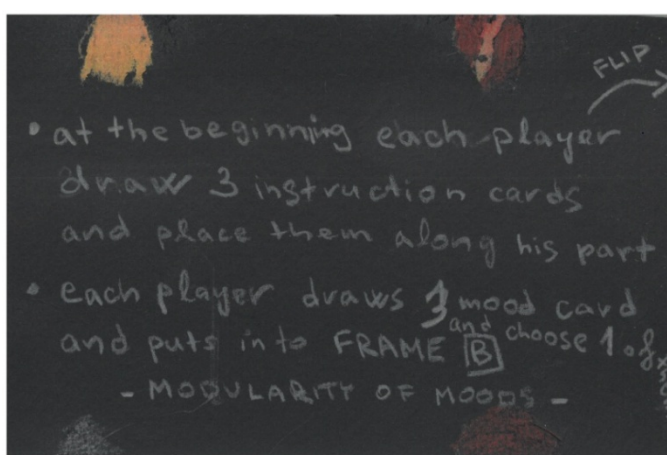 FLIP
• at the beginning each player
draw 3 instruction cards
and place them along his part
• each player draws 3 mood card
and puts into FRAME B and choose 1 of
- MODULARITY OF MOODS -